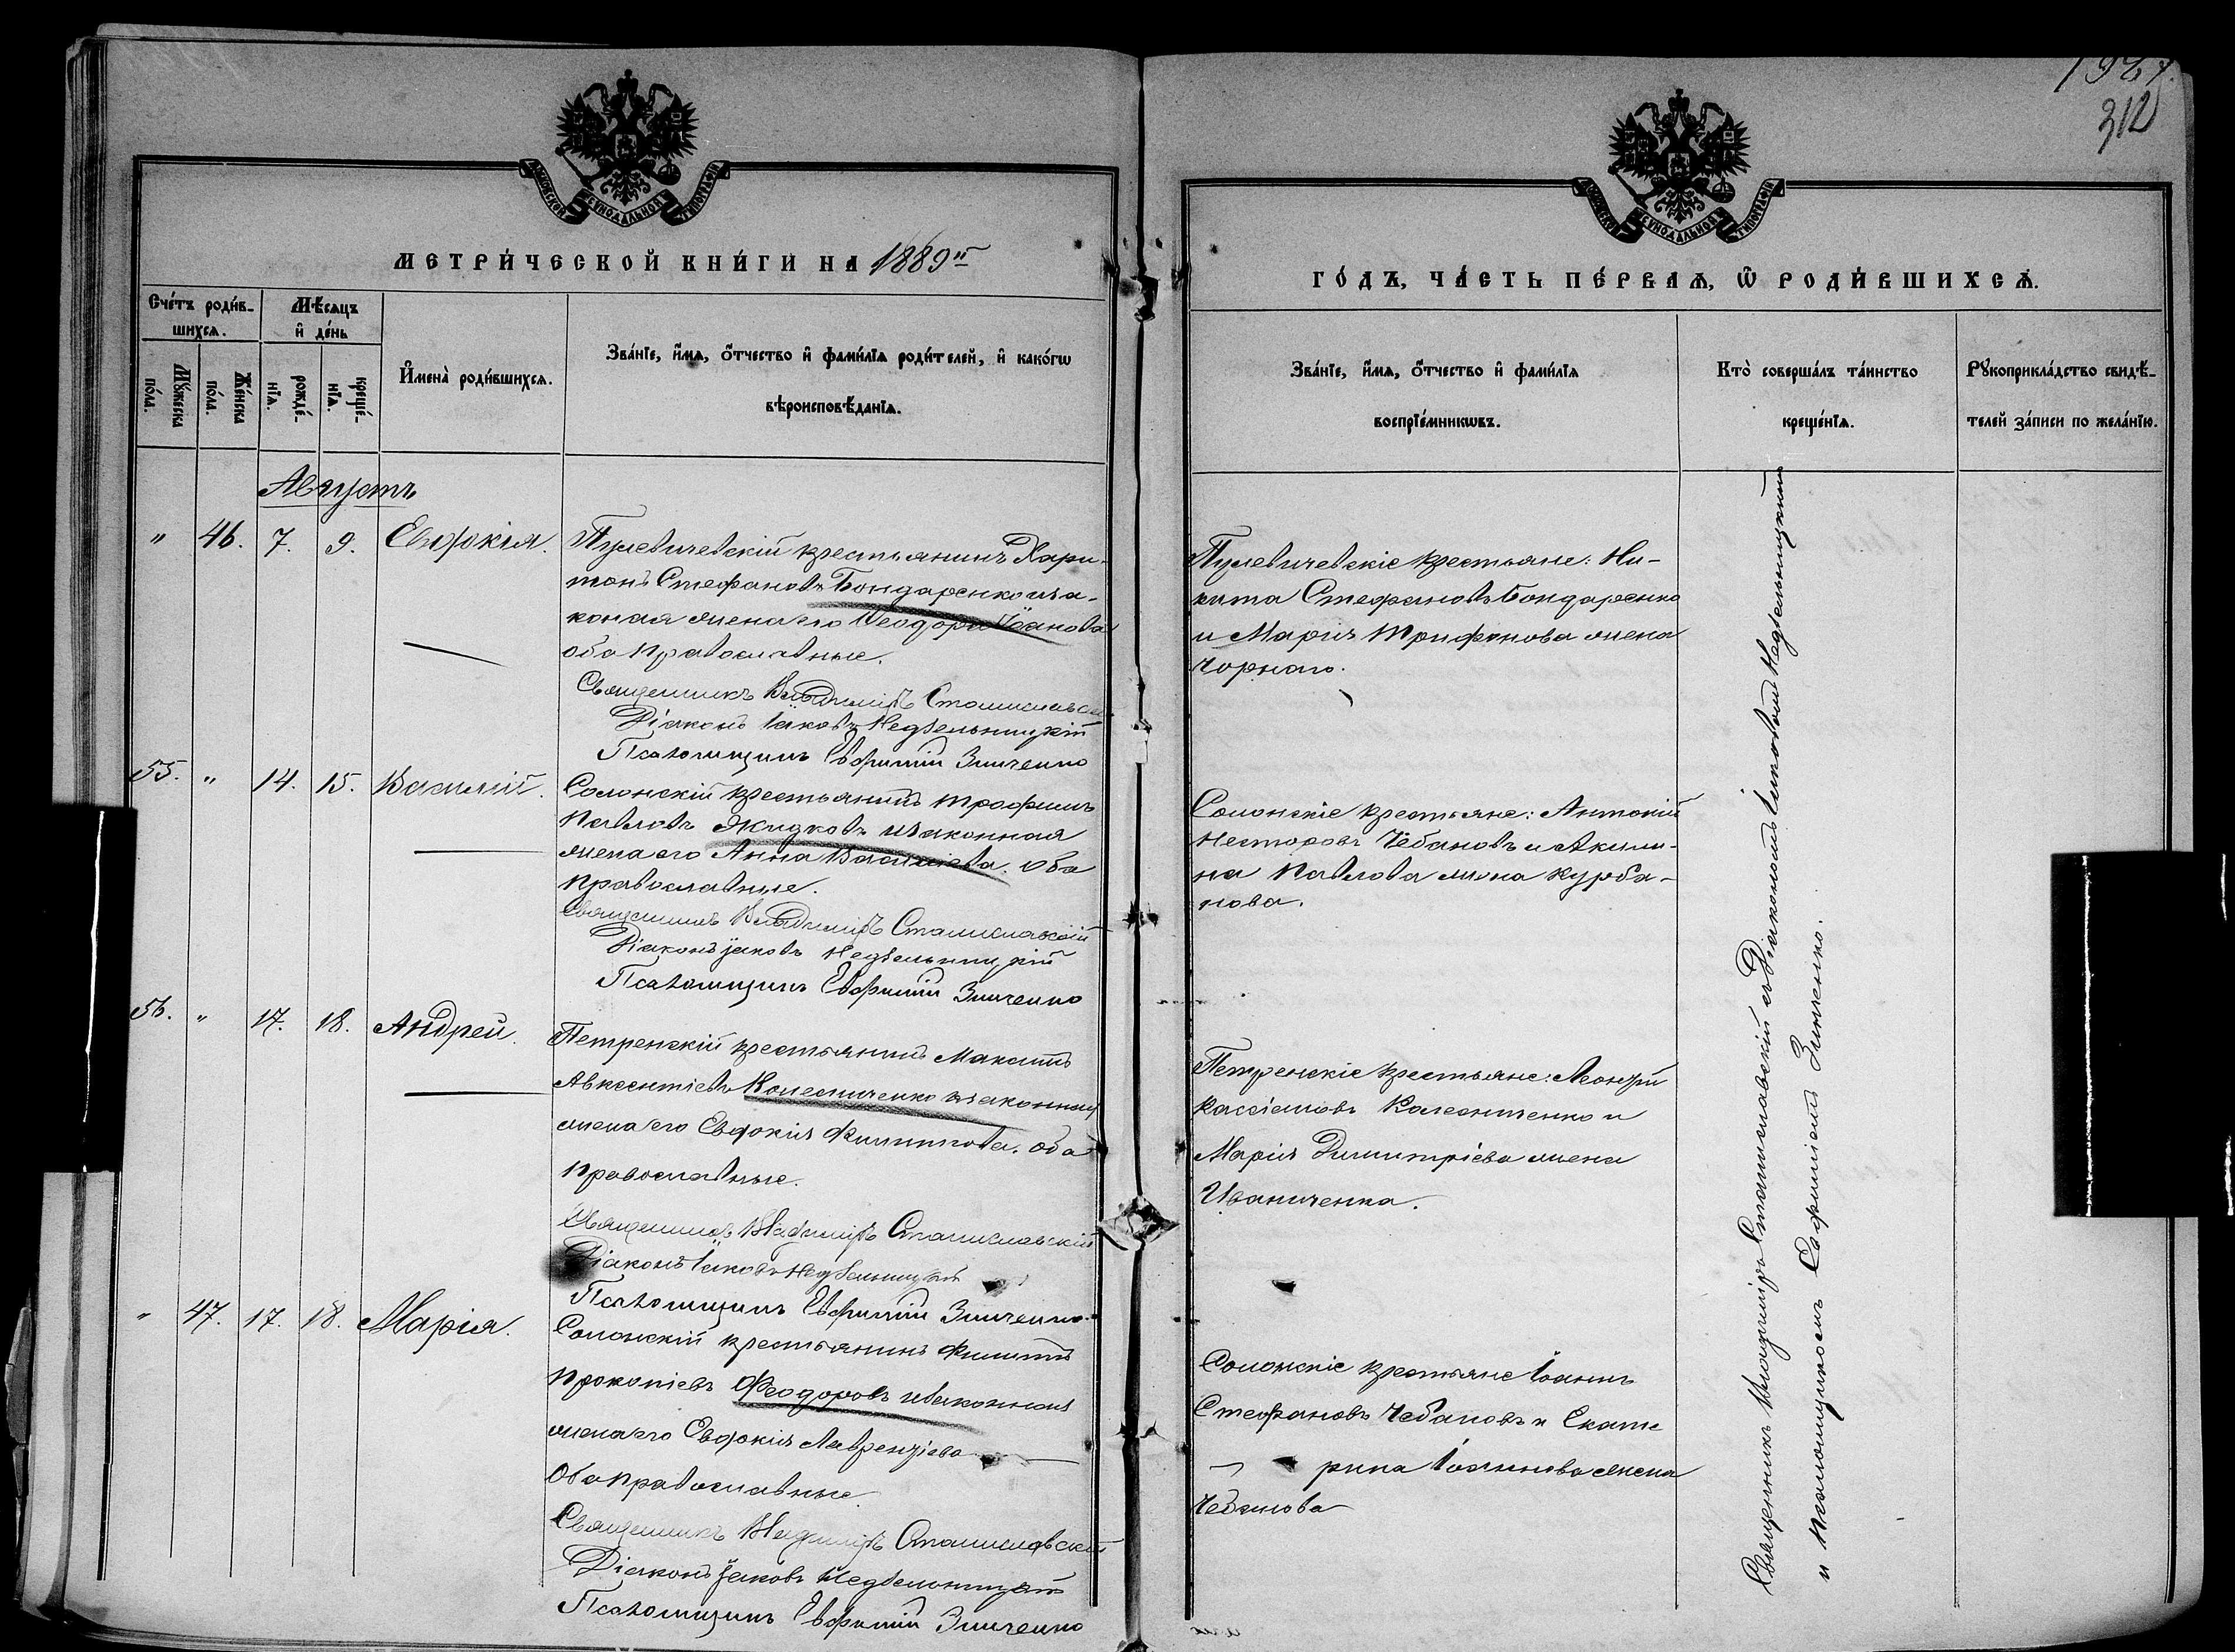 193
312
МОСКОВСКОЙ СѴНОДАЛЬНОЙ ТИПОГРАФІИ
МОСКОВСКОЙ СѴНОДАЛЬНОЙ ТИПОГРАФІИ
МЕТРИ́ЧЕСКОЙ КНИ́ГИ НА 1889й
ГО́ДЪ, ЧА́СТЬ ПЕ́РВАѦ, Ѡ҆ РОДИ́ВШИХСѦ.
Сче́тъ роди́в-
шихсѧ.
Мѹ́жеска по́ла.
Же́нска по́ла.
Мѣ́сяцъ
и҆ де́нь
рожде́-нїѧ.
креще́-нїѧ.
И҆мена̀ роди́вшихсѧ.
Зва́нїе, и҆́мѧ, ѻ҆́тчество и҆ фами́лїѧ роди́телей, и҆ како́гѡ
вѣроисповѣ́данїѧ.
Зва́нїе, и҆́мѧ, ѻ҆́тчество и҆ фами́лїѧ
воспрїе́мникѡвъ.
Кто̀ соверша́лъ та́инство
креще́нїѧ.
Рѹкоприкла́дство свидѣ́-
телей за́писи по жела́нїю.
Августъ
" 46. 7. 9. Евдокія.
Пулевичевскій крестьянинъ Хари-
тонъ Стефановъ Бондаренко и за-
коная жена его Ѳеодора Іоанова
оба православные.
Священникъ Владиміръ Станиславскій
Діаконъ Іаковъ Недѣельницкій
Псаломщикъ Евфимій Зинченко
Пулевичевскіе крестьяне: Ни-
кита Стефановъ Бондаренко
и Марія Трифонова жена
Чорнаго.
55. " 14. 15. Василій.
Солонскій крестьянинъ Трофимъ
Павловъ Жидковъ и законная
жена его Анна Василіева. Оба
православные.
Священникъ Владиміръ Станиславскій
Діаконъ Іаковъ Недѣельницкій
Псаломщикъ Евфимій Зинченко
Солонскіе крестьяне: Антоній
Несторовъ Чебановъ и Акили-
на Павлова жена Курба-
нова.
56. " 17. 18. Андрей.
Петренскій крестьянинъ Максимъ
Авксентіевъ Колесниченко и законная
жена его Евдокія Филиппова. Оба
православные.
Священникъ Владиміръ Станиславскій
Діаконъ Іаковъ Недѣельницкій
Псаломщикъ Евфимій Зинченко
Петренскіе крестьяне: Леонтій
Кассіановъ Колесниченко и
Марія Димитріева жена
Иваниченка.
" 47. 17. 18. Марія.
Солонскій крестьянинъ Филиппъ
Прокопіевъ Ѳеодоровъ и законная
жена его Евдокія Лаврентіева
Оба православные
Священникъ Владиміръ Станиславскій
Діаконъ Іаковъ Недѣельницкій
Псаломщикъ Евфимій Зинченко
Солонскіе крестьяне Іоаннъ
Стефановъ Чебановъ и Екате
рина Іоаннова жена
Чебанова
Священникъ Владиміръ Станиславскій съ Діакономъ Іаковомъ Недѣельницкимъ
и псаломщикомъ Евфиміемъ Зинченко.